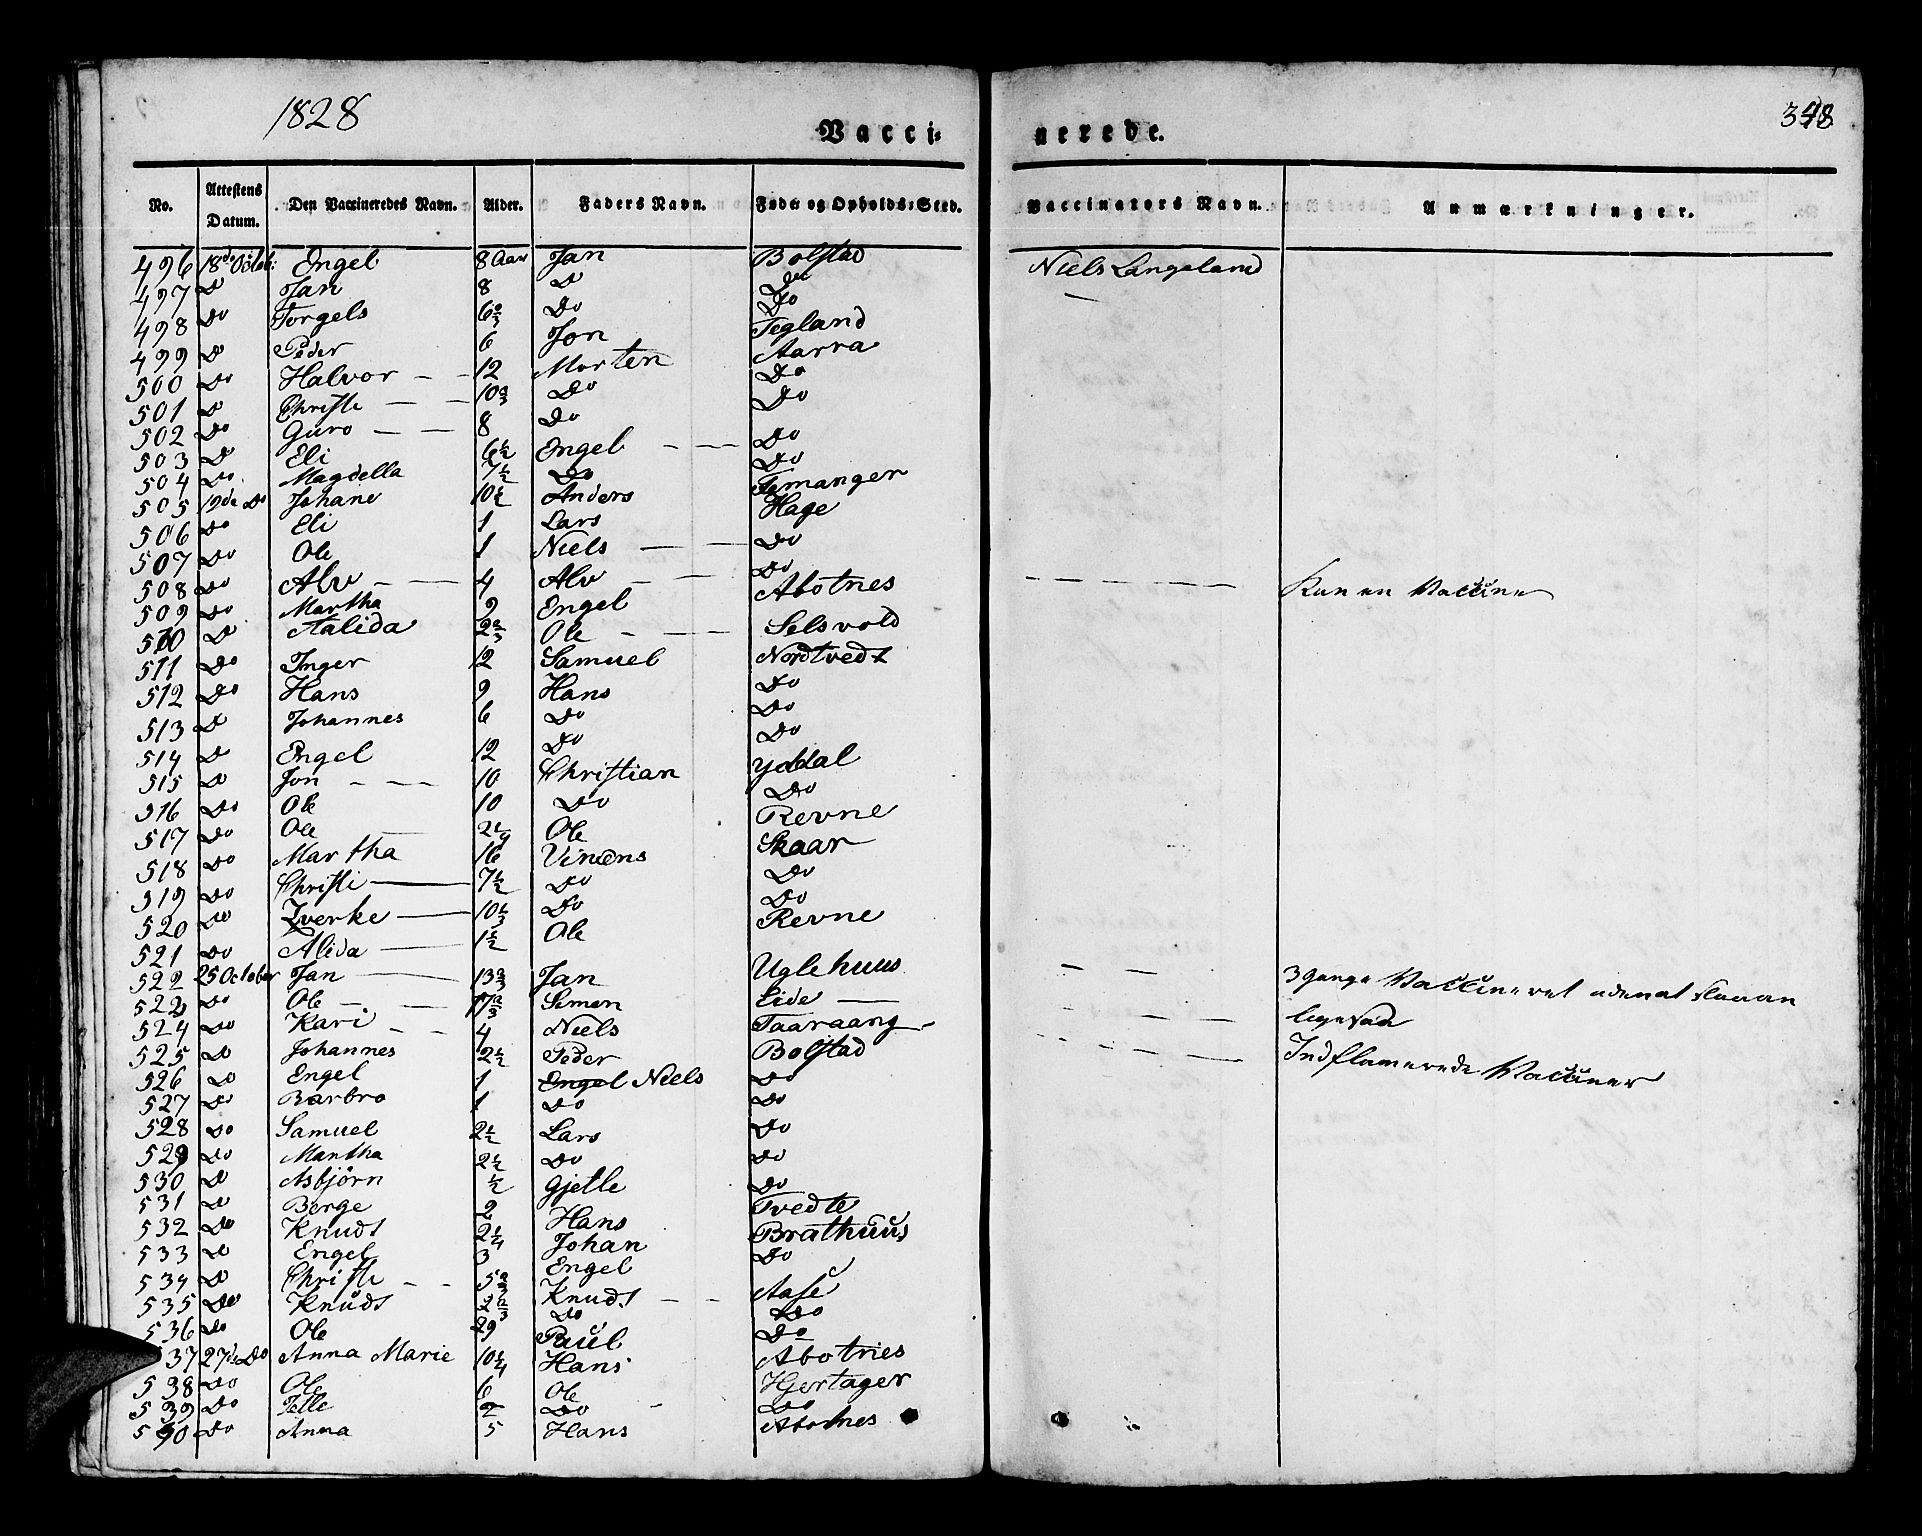 1828
Vacci-
nerede.
348
No. Attestens Datum. Den Vaccineredes Navn. Alder. Faders Navn. Føde- og Opholds-Sted. Vaccinators Navn. Anmærkninger.
496 18de Octob: Engel 8 Aar Jan Bolstad Niels Langeland
497 Do Jan 8 Do Do
498 Do Torgels 6 2/3 Do Do
499 Do Peder 6 Jon Tegland
500 Do Halvor 12 Morten Aarra
501 Do Christi 10 2/3 Do Do
502 Do Guro 8 Do Do
503 Do Eli 6 1/2 Engel Do
504 Do Magdella 7 1/2 Do Do
505 19de Do Johane 10 1/2 Anders Femanger
506 Do Eli 1 Lars Hage
507 Do Ole 1 Niels Do
508 Do Alv 4 Alv Do Kun en Vaccine
509 Do Martha 9 Engel Abotnes
510 Do Aalida 2 2/3 Ole Selsvold
511 Do Inger 12 Samuel Nordtvedt
512 Do Hans 9 Hans Do
513 Do Johannes 6 Do Do
514 Do Engel 12 Do Do
515 Do Jon 10 Christian Yddal
516 Do Ole 10 Do Do
517 Do Ole 2 Ole Revne
518 Do Martha 16 Skaar
519 Do Christi 7 1/2 Do Do
520 Do Zverke 10 1/3 Do Do
521 Do Alida 1 1/2 Ole Revne
522 25 October Jan 13 2/3 Jan Uglehuus 3 gange Vaccineret uden at slaaan
522 Do Ole 17 2/3 Simen Eide
524 Do Kari 4 Niels Taaraang ligesaa
525 Do Johannes 2 1/2 Peder Bolstad Indflamerede Vacciner
526 Do Engel 1 Engel Niels Do
527 Do Barbro 1 Do Do
528 Do Samuel 2 1/2 Lars Do
529 Do Martha 2 1/2 Do Do
530 Do Asbjørn 1/2 Gjetle Do
531 Do Berge 2 Hans Tvedte
532 Do Knudt 2 1/4 Johan Brathuus
533 Do Engel 3 Engel Do
534 Do Christi 5 2/3 Knudt Aase
535 Do Knuds 2 2/3 Do Do
536 Do Ole 29 Paul Do
537 27de Do Anna Marie 10 1/4 Hans Abotnes
538 Do Ole 6 Ole Hjertager
539 Do Pelle 2 Do Do
540 Do Anna 5 Hans Abotnes